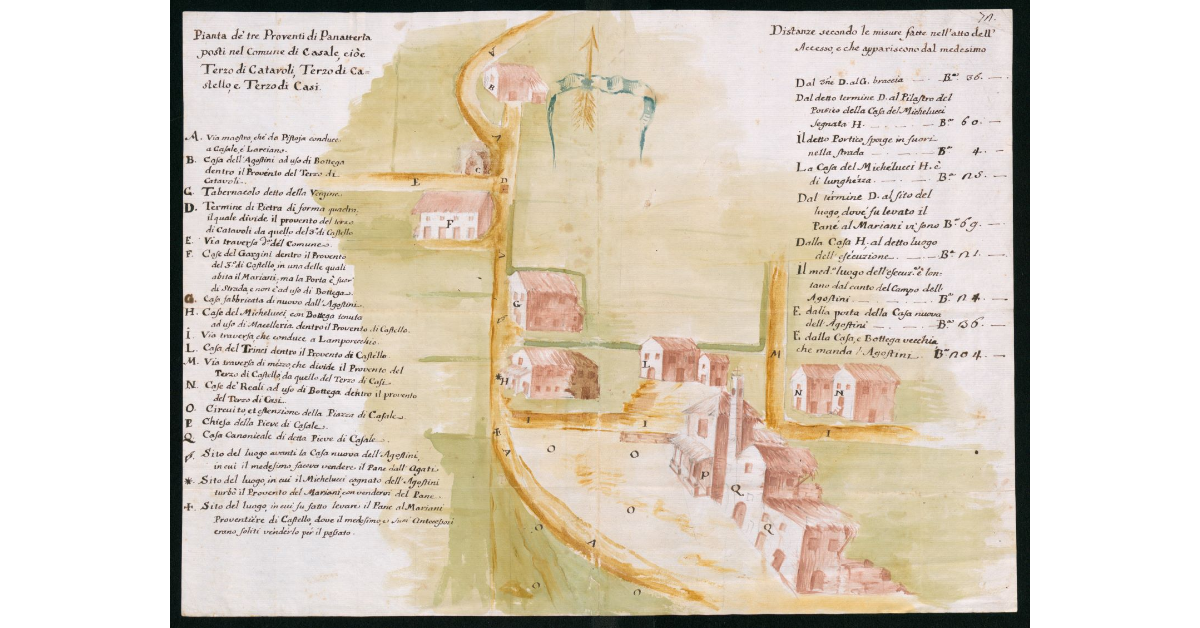 Pianta de' tre Proventi di Panatteria
posti nel Comune di Casale, cioè
Terzo di Catavoli, Terzo di Ca=
stello, e Terzo di Casi.
A. Via maestra, che da Pistoja conduce
a Casale, e Larciano.
B. Casa dell'Agostini ad uso di Bottega
dentro il Provento del Terzo di
Catavoli.
C. Tabernacolo detto della Vergine
D. Termine di Pietra di forma quadra,
il quale divide il provento del terzo
di Catavoli da quello del 3º di Castello
E. Via traversa del Comune
F. Case del Gargini dentro il Provento
del 3º di Castello, in una delle quali
abita il Mariani, ma la Porta è fuor
di Strada, e non è ad uso di Bottega
G. Casa fabbricata di nuovo dall'Agostini
H. Case del Michelucci, con Bottega tenuta
ad uso di Macelleria dentro il Provento di Castello.
I. Via traversa che conduce a Lamporecchio.
L. Casa del Trinci dentro il Provento di Castello
M. Via traversa di mezzo, che divide il Provento del
Terzo di Castello, da quello del Terzo di Casi
N. Case de' Reali ad uso di Bottega dentro il provento
del Terzo di Casi.
O. Circuito, et estensione della Piazza di Casale
P. Chiesa della Pieve di Casale
Q. Casa Canonicale di detta Pieve di Casale
Sito del luogo avanti la Casa nuova dell'Agostini,
in cui il medesimo faceva vendere il Pane dall'Agati
* Sito del luogo, in cui il Michelucci cognato dell'Agostini
turbò il Provento del Mariani, con vendervi del Pane
+ Sito del luogo, in cui fu fatto levare il Pane al Mariani
Proventiere di Castello, dove il medesimo, e suoi Antecessori
erano soliti venderlo per il passato.
Distanze secondo le misure fatte nell'atto dell'
Accesso, e che appariscono dal medesimo
Dal D. al G. braccia Bª 36.
Dal detto termine D. al Pilastro del
Portico della Casa del Michelucci
segnata H. Bª 60.
Il detto Portico sporge in fuori
nella strada Bª 4.
La Casa del Michelucci H. è
di lunghezza Bª 25.
Dal termine D. al sito del
luogo, dove fu levato il
Pane, al Mariani vi sono Bª 69.
Dalla Casa H. al detto luogo
dell'esecuzione Bª 21.
Il luogo dell' è lon=
tano dal canto del Campo dell'
Agostini Bª 24.
E dalla porta della Casa nuova
dell'Agostini Bª 36.
E dalla Casa, e Bottega vecchia
che manda l'Agostini Bª 204.
A
B
A
C
E
D
F
A
G
H
M
N
N
I
I
I
O
O
P
Q
Q
O
O
A
O
O